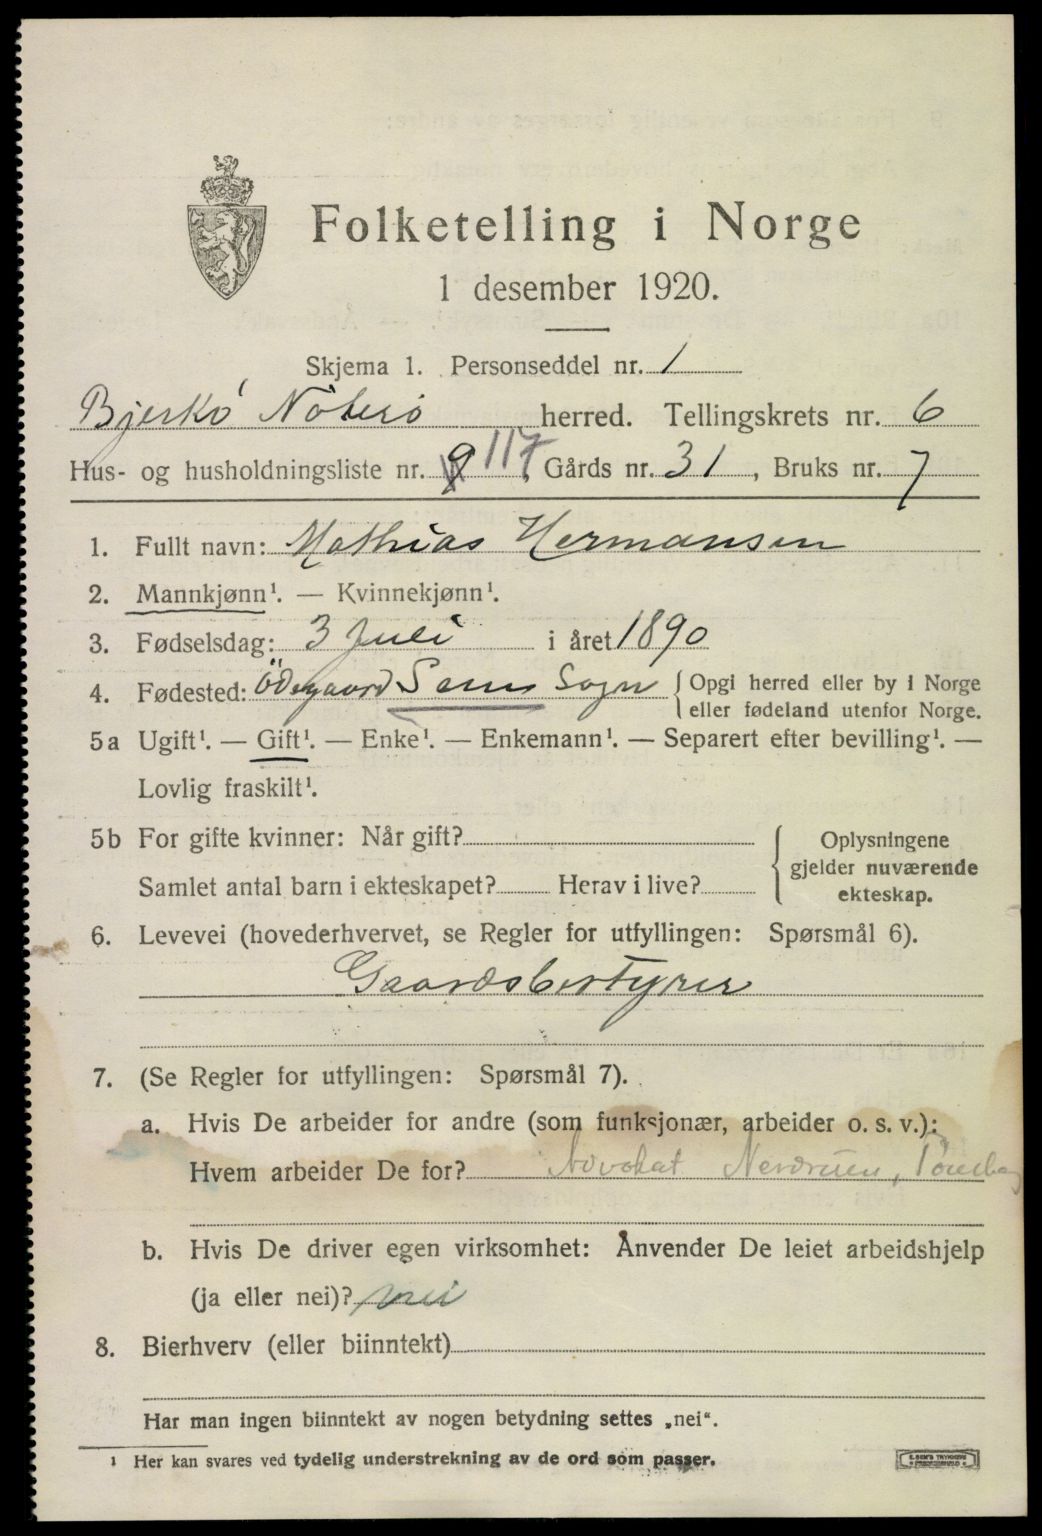 Folketelling i Norge
1 desember 1920.
Skjema 1. Personseddel nr. 1
Bjerkö Nöterö herred. Tellingskrets nr. 6
Hus- og husholdningsliste nr. 9 117, Gårds nr. 31, Bruks nr. 7
1. Fullt navn: Mathias Hermansen
2. Mannkjønn¹. — Kvinnekjønn¹.
3. Fødselsdag: 3 Juli i året 1890
4. Fødested: Ödegaard Sems Sogn { Opgi herred eller by i Norge
eller fødeland utenfor Norge.
5a Ugift¹. — Gift¹. — Enke¹. — Enkemann¹. — Separert efter bevilling¹. —
Lovlig fraskilt¹.
5b For gifte kvinner: Når gift? { Oplysningene
gjelder nuværende
Samlet antal barn i ekteskapet? Herav i live? ekteskap.
6. Levevei (hovederhvervet, se Regler for utfyllingen: Spørsmål 6).
Gaardsbestyrer
7. (Se Regler for utfyllingen: Spørsmål 7).
a. Hvis De arbeider for andre (som funksjonær, arbeider o. s. v.):
Hvem arbeider De for? Advokat Nerdrum, Tönsberg
b. Hvis De driver egen virksomhet: Anvender De leiet arbeidshjelp
(ja eller nei)? nei
8. Bierhverv (eller biinntekt)
Har man ingen biinntekt av nogen betydning settes „nei“.
¹ Her kan svares ved tydelig understrekning av de ord som passer.